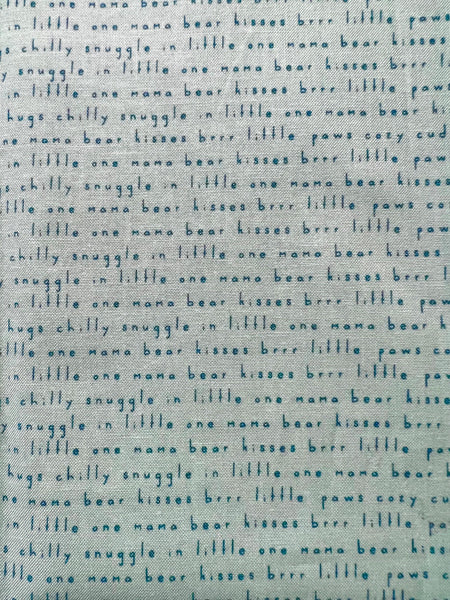 little one mama bear kisses brrr little paws
chilly snuggle in little one mama bear kisses
snuggle in little one mama bear kisses brrr
in little one mama bear kisses brrr little paws
hugs chilly snuggle in little one mama bear
mama bear kisses brrr little paws cozy
in little one mama bear kisses brrr little paw
chilly snuggle in little one mama bear kisses
one mama bear kisses brrr little paws
in little one mama bear kisses brrr little paw
chilly snuggle in little one mama bear kisses
snuggle in little one mama bear kisses brrr
in little one mama bear kisses brrr little
hugs chilly snuggle in little one mama bear
one mama bear kisses brrr little paws
in little one mama bear kisses brrr little
chilly snuggle in little one mama bear kisses
snuggle in little one mama bear kisses brrr
in little one mama bear kisses brrr little
hugs chilly snuggle in little one mama bear
mama bear kisses brrr little paws cozy
in little one mama bear kisses brrr little
chilly snuggle in little one mama bear kisses
one mama bear kisses brrr little paws